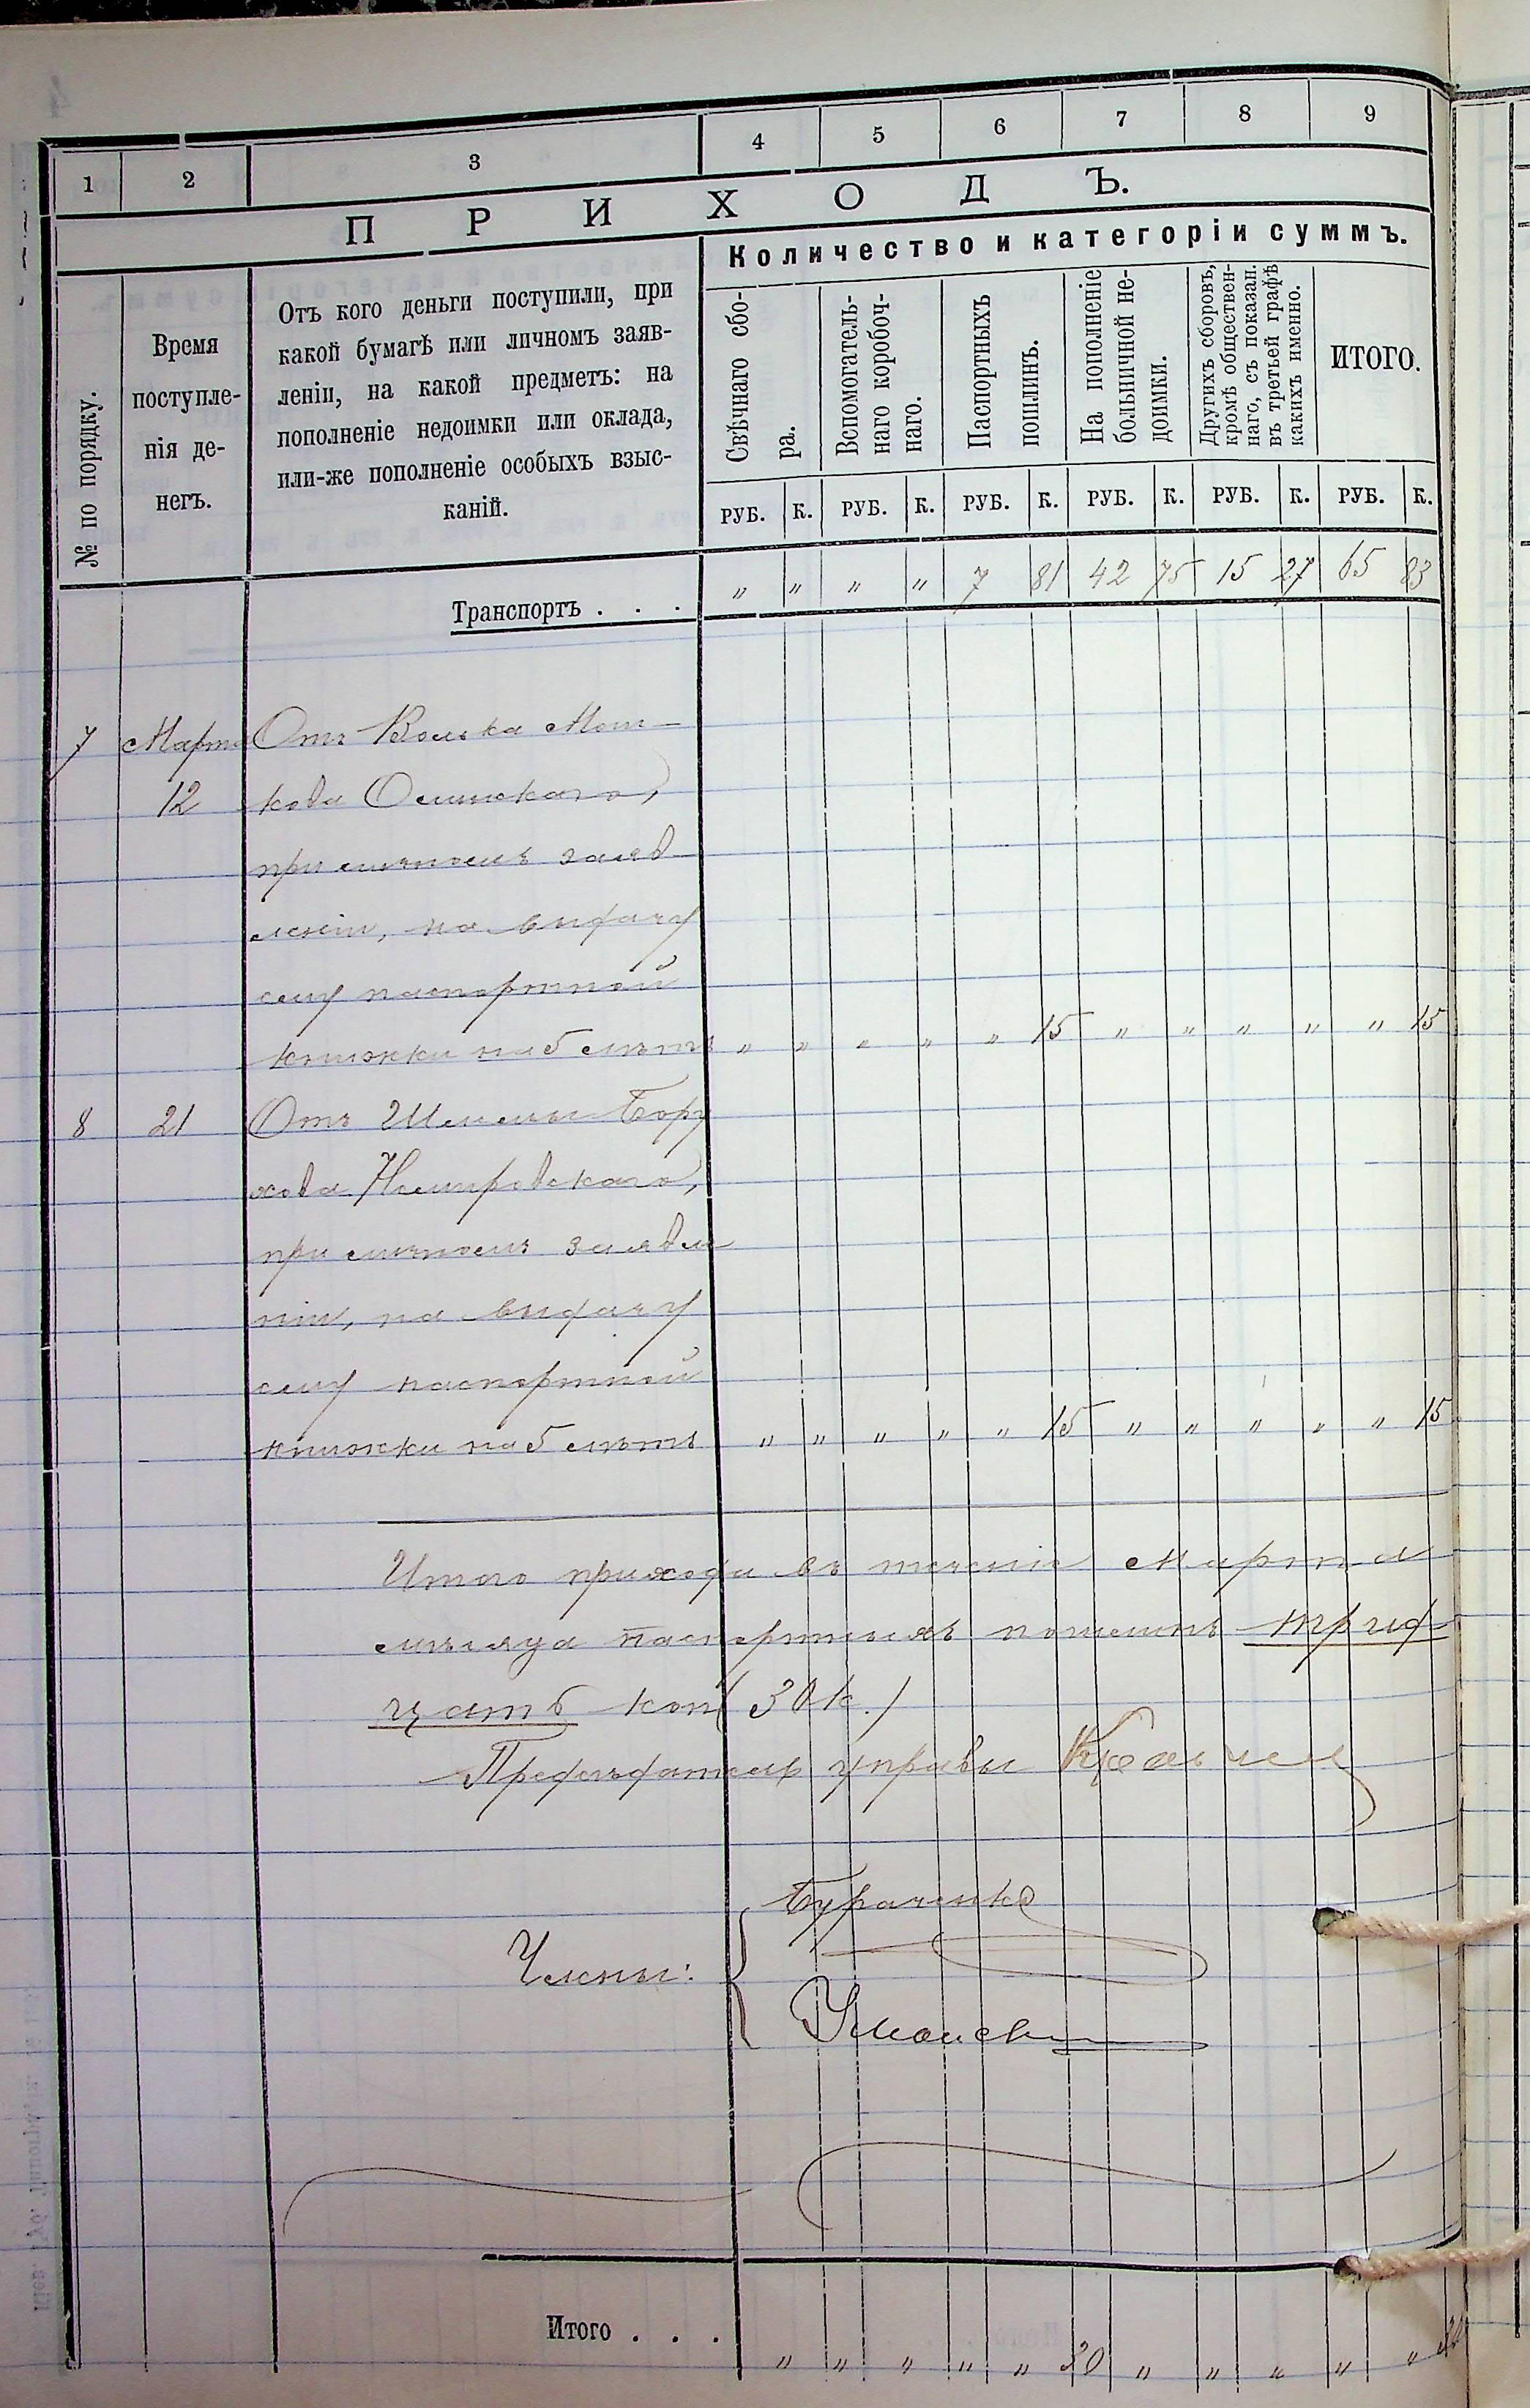 1 2 3 4 5 6 7 8 9
ПРИХОДЪ.
№ по порядку.
Время
поступле-
нія де-
негъ.
Отъ кого деньги поступили, при
какой бумагѣ или личномъ заяв-
леніи, на какой предметъ: на
пополненіе недоимки или оклада,
или-же пополненіе особыхъ взыс-
каній.
Количество и категоріи суммъ.
Свѣчнаго сбо-
ра.
Вспомогатель-
наго коробоч-
наго.
Паспортныхъ
пошлинъ.
На пополненіе
больничной не-
доимки.
Другихъ сборовъ,
кромѣ обществен-
наго, съ показан.
въ третьей графѣ
какихъ именно.
ИТОГО.
РУБ. К. РУБ. К. РУБ. К. РУБ. К. РУБ. К. РУБ. К.
Транспортъ . . . " " " " 7 81 42 75 15 27 65 83
7 Марта Отъ Волька Мош-
12 кова Осинскаго,
при личномъ заяв
леніи, на выдачу
ему паспортной
книжки на 5 лѣтъ " " " " " 15 " " " " " 15
8 21 Отъ Шлемы Бору
хова Немировскаго,
при личномъ заявле
ніи, на выдачу
ему паспортной
книжки на 5 лѣтъ " " " " " 15 " " " " " 15
Итого прихода въ теченіе марта
мѣсяца паспортныхъ пошлинъ трид-
цать коп (30 к.)
Предсѣдатель управы
Бураченко
Члены:
Итого . . . " " " " " 30 " " " " "